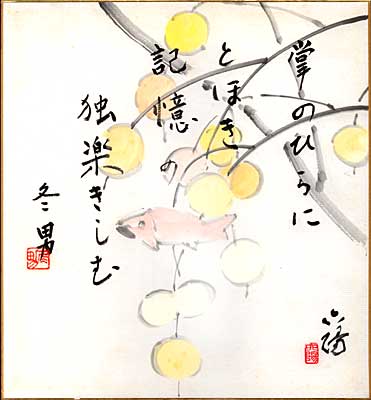 掌のひらに
とほき
記憶の
独楽きしむ
冬男